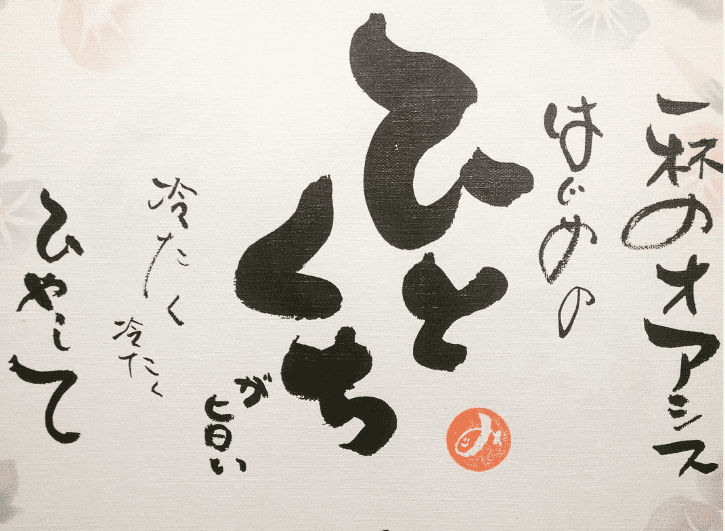 一杯のオアシス
はじめの
ひとくち
が旨い
冷たく
冷たく
ひやして